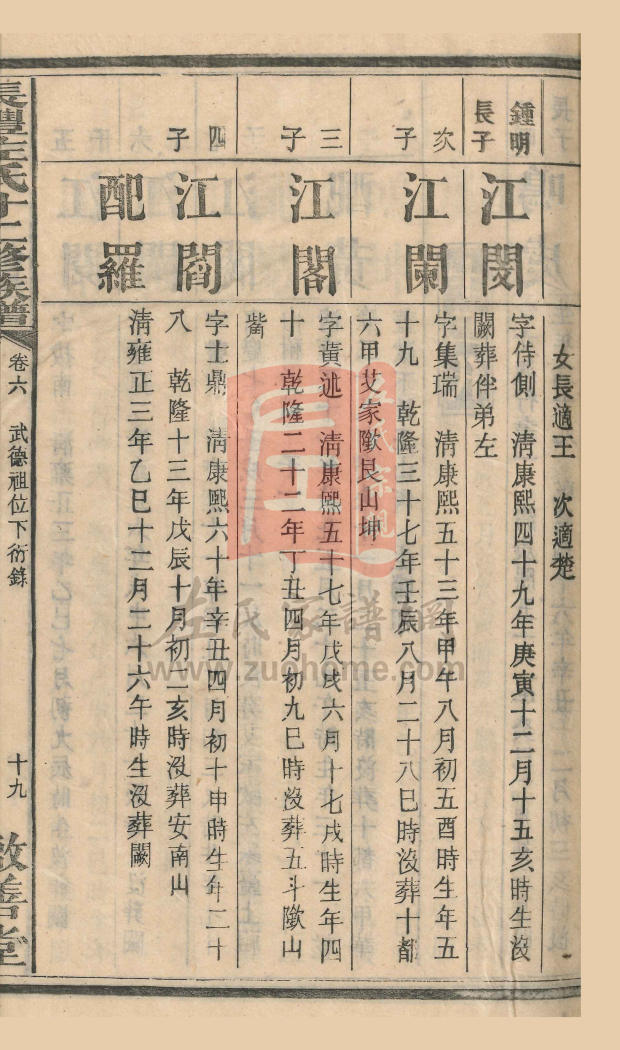 女長適王　次適楚
鍾明
長子
江閔
字侍側　淸康熙四十九年庚寅十二月十五亥時生沒
闕葬伴弟左
次子
江闌
字集瑞　淸康熙五十三年甲午八月初五酉時生年五
十九　乾隆三十七年壬辰八月二十八巳時沒葬十都
六甲艾家歐艮山坤
三子
江閣
字黃述　淸康熙五十七年戊戌六月十七戌時生年四
十　乾隆二十二年丁丑四月初九巳時沒葬五斗歐山
觜
四子
江閻
字士鼎　淸康熙六十年辛丑四月初十申時生年二十
八　乾隆十三年戊辰十月初二亥時沒葬安南山
配羅
淸雍正三年乙巳十二月二十六午時生沒葬闕
長澧左氏十二修族譜
卷六　武德祖位下衍錄
十九
敦善堂
左氏家譜網
www.zuohome.com